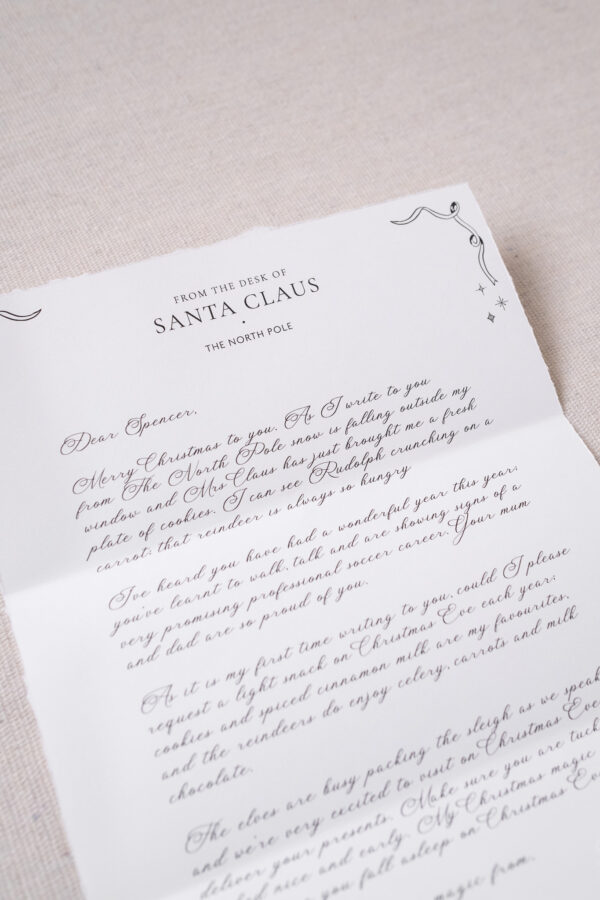 FROM THE DESK OF
SANTA CLAUS
THE NORTH POLE
Dear Spencer,
Merry Christmas to you. As I write to you
from The North Pole snow is falling outside my
window and Mrs Claus has just brought me a fresh
plate of cookies. I can see Rudolph crunching on a
carrot; that reindeer is always so hungry
I've heard you have had a wonderful year this year;
you've learnt to walk, talk and are showing signs of a
very promising professional soccer career. Your mum
and dad are so proud of you.
As it is my first time writing to you, could I please
request a light snack on Christmas Eve each year;
cookies and spiced cinnamon milk are my favourites,
and the reindeers do enjoy celery, carrots and milk
chocolate.
The elves are busy packing the sleigh as we speak
and we're very excited to visit on Christmas Eve
deliver your presents. Make sure you are tuck
nice and early. My Christmas magic
you fall asleep on Christmas Ev
magic from,